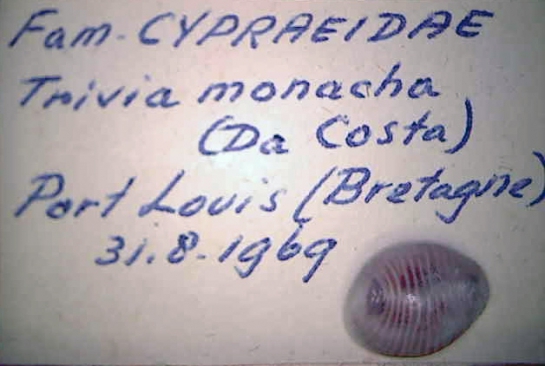 Fam. CYPRAEIDAE
Trivia monacha
(Da Costa)
Port Louis (Bretagne)
31.8.1969